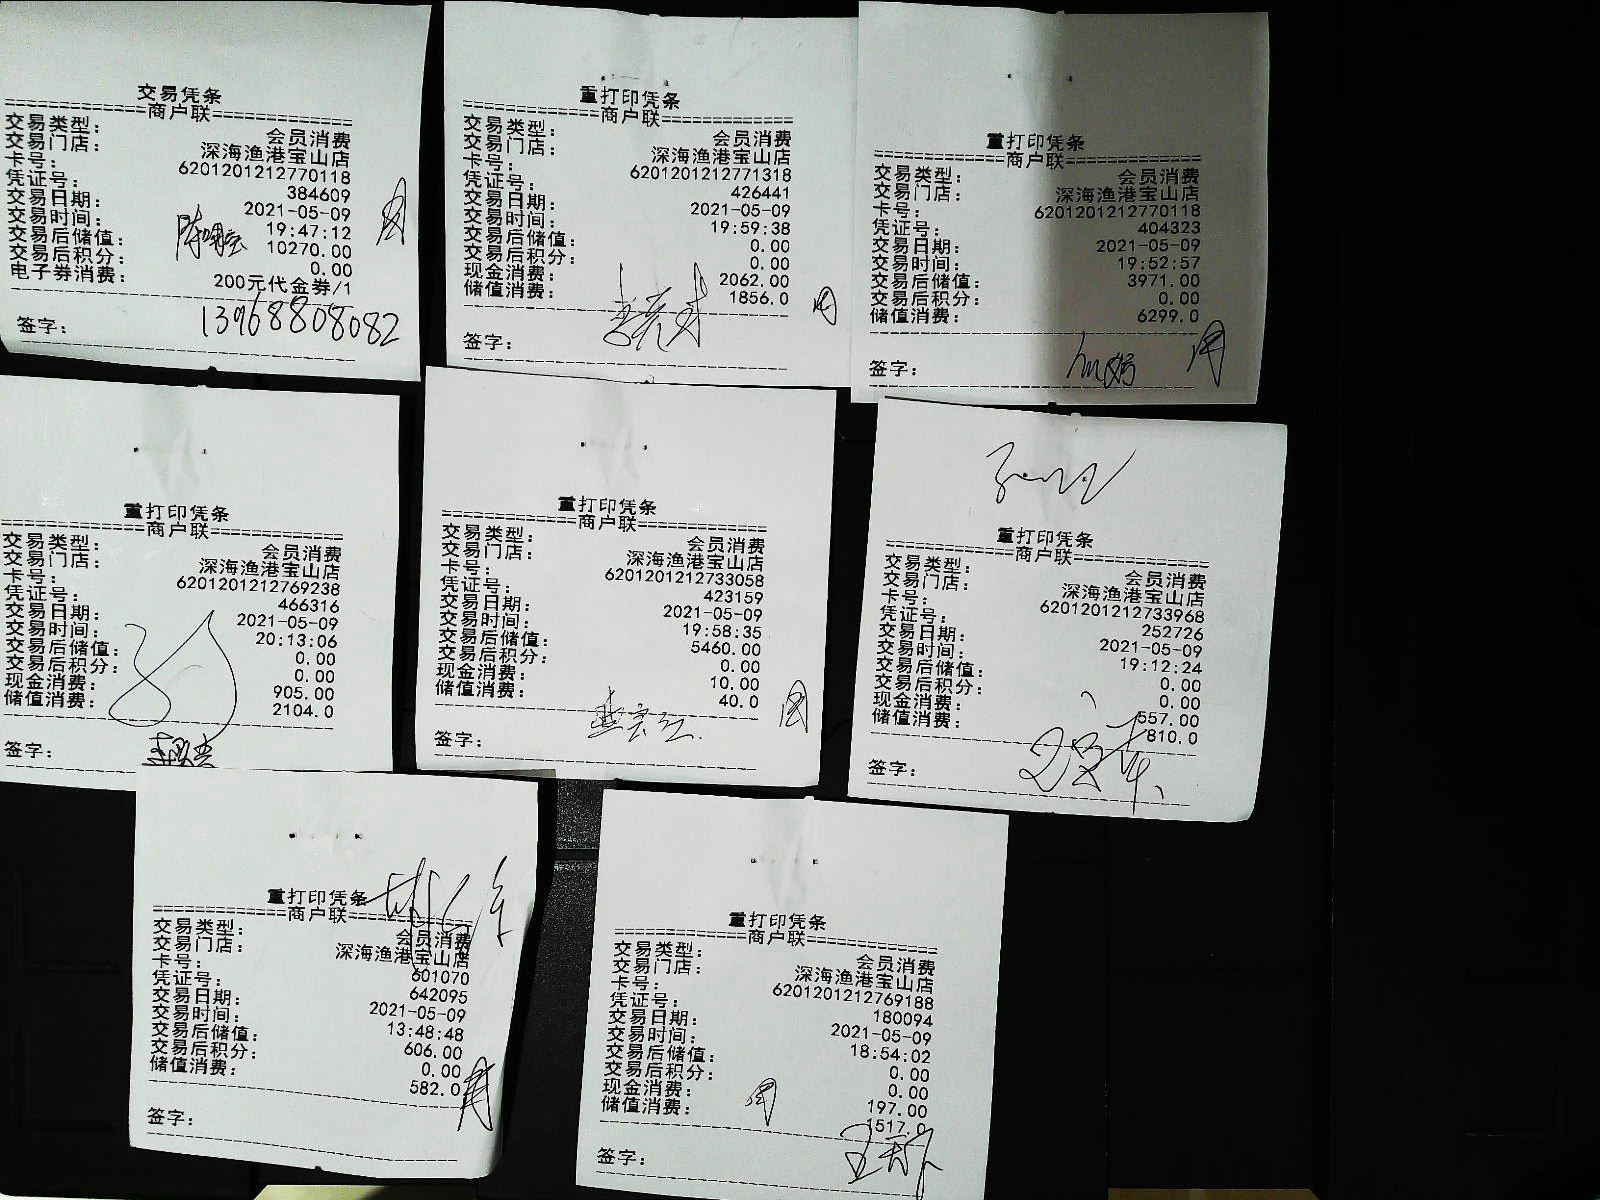 交易凭条
商户联
交易类型： 会员消费
交易门店： 深海渔港宝山店
卡号： 6201201212770118
凭证号： 384609
交易日期： 2021-05-09
交易时间： 19:47:12
交易后储值： 10270.00
交易后积分： 0.00
电子券消费： 200元代金券/1
签字： 13968808082
重打印凭条
商户联
交易类型： 会员消费
交易门店： 深海渔港宝山店
卡号： 6201201212771318
凭证号： 426441
交易日期： 2021-05-09
交易时间： 19:59:38
交易后储值： 0.00
交易后积分： 0.00
现金消费： 2062.00
储值消费： 1856.0
签字：
重打印凭条
商户联
交易类型： 会员消费
交易门店： 深海渔港宝山店
卡号： 6201201212770118
凭证号： 404323
交易日期： 2021-05-09
交易时间： 19:52:57
交易后储值： 3971.00
交易后积分： 0.00
储值消费： 6299.0
签字：
重打印凭条
商户联
交易类型： 会员消费
交易门店： 深海渔港宝山店
卡号： 6201201212769238
凭证号： 466316
交易日期： 2021-05-09
交易时间： 20:13:06
交易后储值： 0.00
交易后积分： 0.00
现金消费： 905.00
储值消费： 2104.0
签字：
重打印凭条
商户联
交易类型： 会员消费
交易门店： 深海渔港宝山店
卡号： 6201201212733058
凭证号： 423159
交易日期： 2021-05-09
交易时间： 19:58:35
交易后储值： 5460.00
交易后积分： 0.00
现金消费： 10.00
储值消费： 40.0
签字：
重打印凭条
商户联
交易类型： 会员消费
交易门店： 深海渔港宝山店
卡号： 6201201212733968
凭证号： 252726
交易日期： 2021-05-09
交易时间： 19:12:24
交易后储值： 0.00
交易后积分： 0.00
现金消费： 557.00
储值消费： 810.0
签字：
重打印凭条
商户联
交易类型： 会员消费
交易门店： 深海渔港宝山店
卡号： 601070
凭证号： 642095
交易日期： 2021-05-09
交易时间： 13:48:48
交易后储值： 606.00
交易后积分： 0.00
储值消费： 582.0
签字：
重打印凭条
商户联
交易类型： 会员消费
交易门店： 深海渔港宝山店
卡号： 6201201212769188
凭证号： 180094
交易日期： 2021-05-09
交易时间： 18:54:02
交易后储值： 0.00
交易后积分： 0.00
现金消费： 197.00
储值消费： 1517.0
签字：